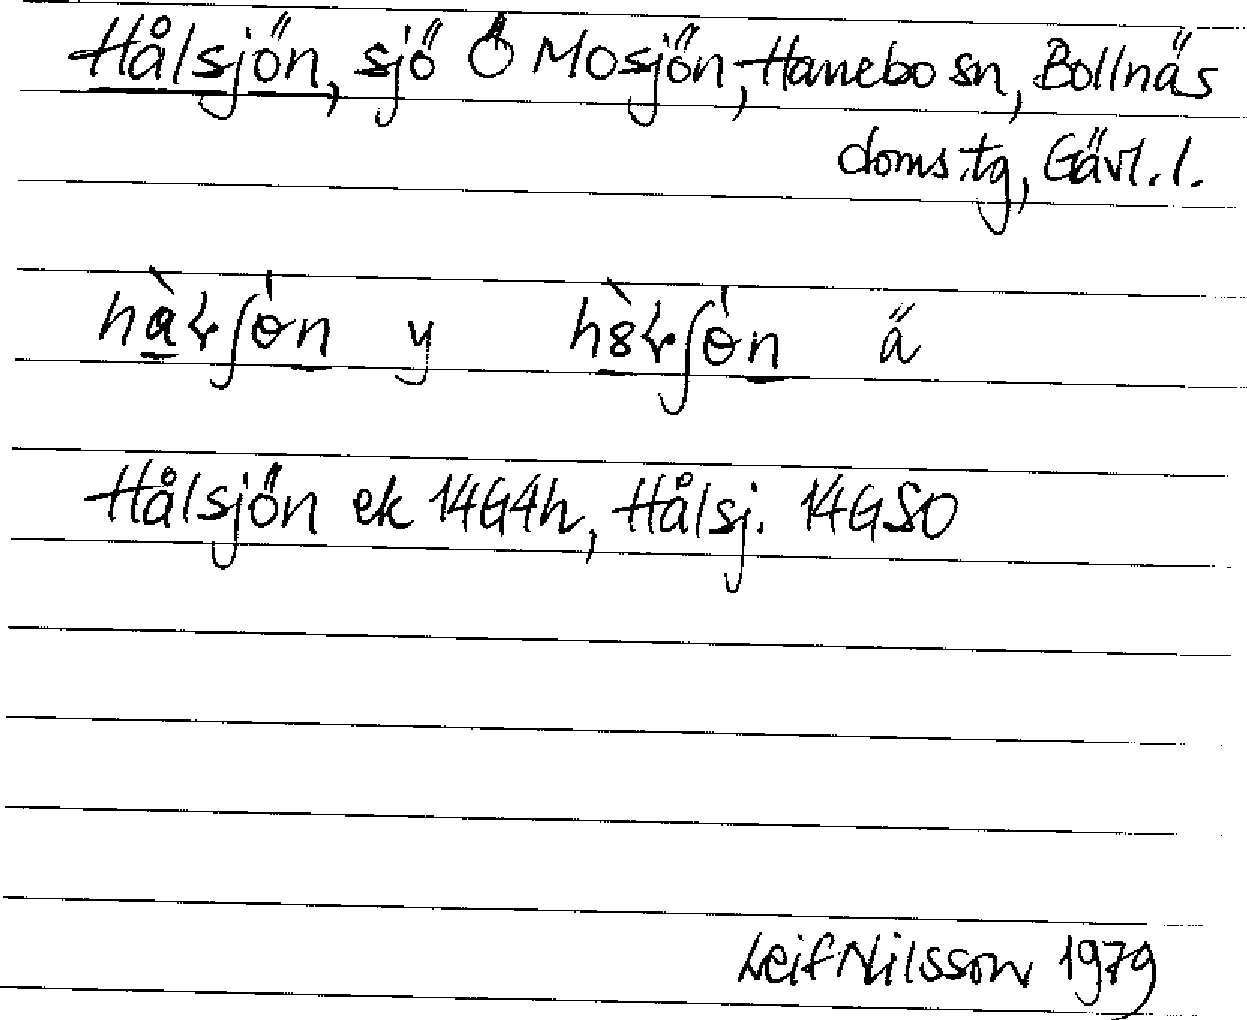 Hålsjön, sjö Ö Mosjön, Hanebo sn, Bollnäs
doms.tg, Gävl.l.
y ä
Hålsjön ek 14G4h, Hålsj. 14GSO
Leif Nilsson 1979